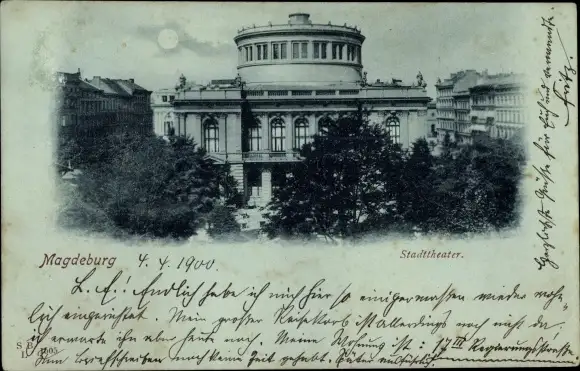 Magdeburg 4. 4. 1900.
Stadttheater.
L. E.! Endlich habe ich mich hier so einigermassen wieder wohn-
lich eingerichtet. Mein großer Reisekorb ist allerdings noch nicht da.
ich erwarte ihn aber heute noch. Meine Wohnung ist: 17 III Regierungsstrasse
Zum Briefschreiben noch keine Zeit gehabt.
Herzlichste Grüße für Euch und
Fritz
S B